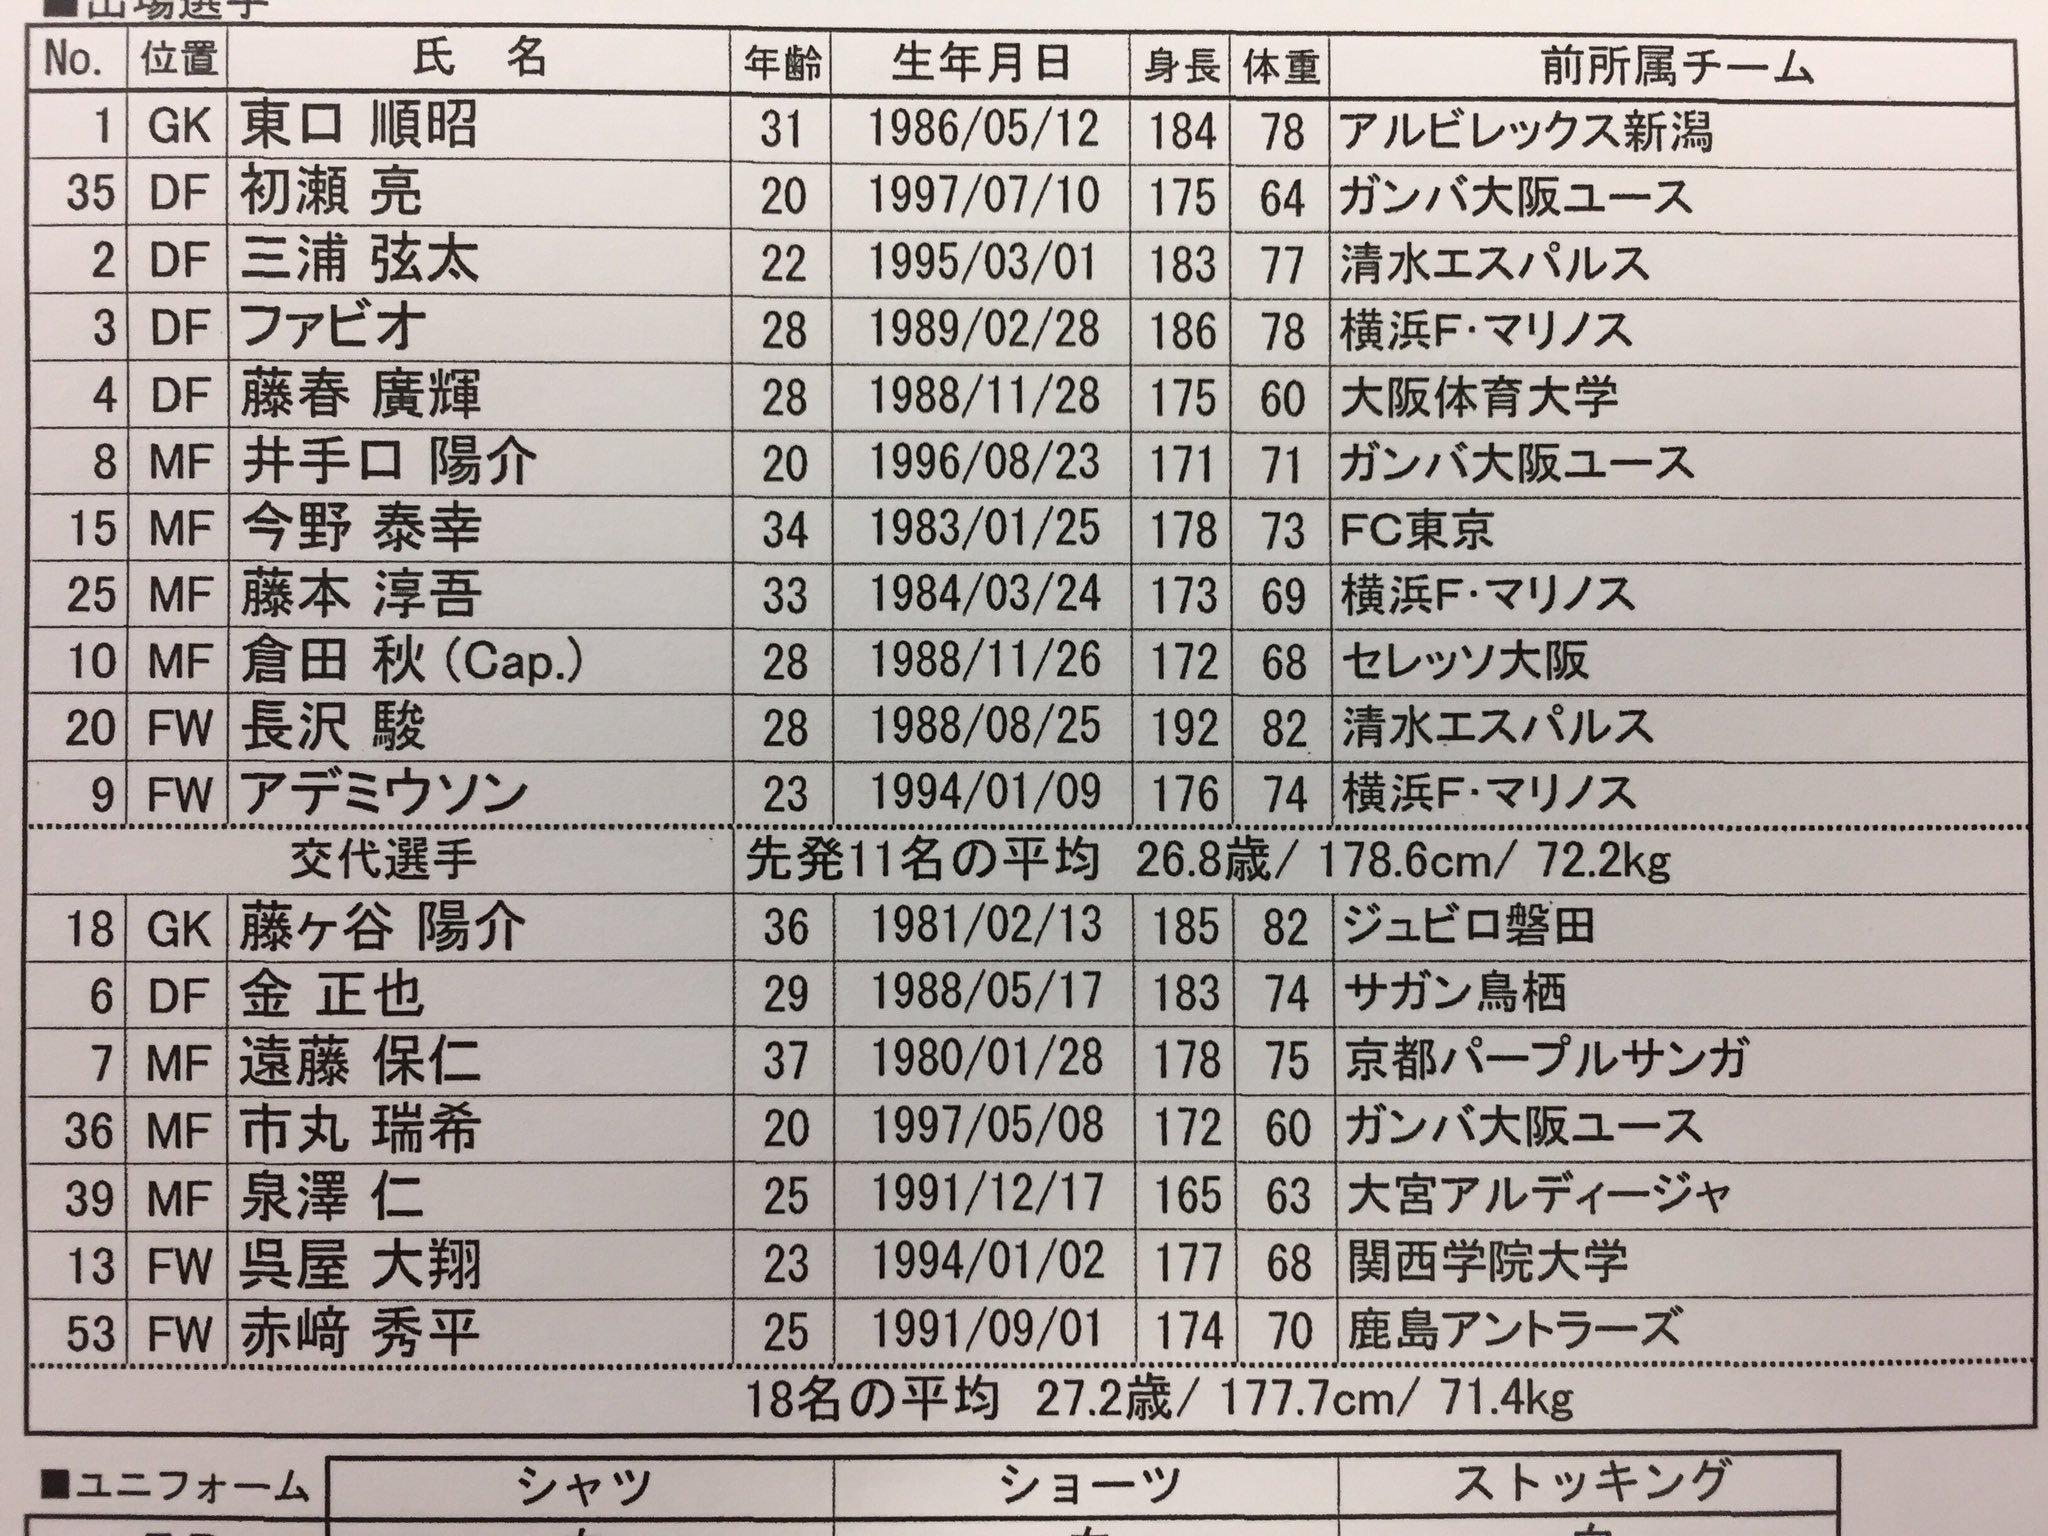 ■出場選手
No. 位置 氏 名 年齢 生年月日 身長 体重 前所属チーム
1 GK 東口 順昭 31 1986/05/12 184 78 アルビレックス新潟
35 DF 初瀬 亮 20 1997/07/10 175 64 ガンバ大阪ユース
2 DF 三浦 弦太 22 1995/03/01 183 77 清水エスパルス
3 DF ファビオ 28 1989/02/28 186 78 横浜F・マリノス
4 DF 藤春 廣輝 28 1988/11/28 175 60 大阪体育大学
8 MF 井手口 陽介 20 1996/08/23 171 71 ガンバ大阪ユース
15 MF 今野 泰幸 34 1983/01/25 178 73 FC東京
25 MF 藤本 淳吾 33 1984/03/24 173 69 横浜F・マリノス
10 MF 倉田 秋 (Cap.) 28 1988/11/26 172 68 セレッソ大阪
20 FW 長沢 駿 28 1988/08/25 192 82 清水エスパルス
9 FW アデミウソン 23 1994/01/09 176 74 横浜F・マリノス
交代選手 先発11名の平均 26.8歳/ 178.6cm/ 72.2kg
18 GK 藤ヶ谷 陽介 36 1981/02/13 185 82 ジュビロ磐田
6 DF 金 正也 29 1988/05/17 183 74 サガン鳥栖
7 MF 遠藤 保仁 37 1980/01/28 178 75 京都パープルサンガ
36 MF 市丸 瑞希 20 1997/05/08 172 60 ガンバ大阪ユース
39 MF 泉澤 仁 25 1991/12/17 165 63 大宮アルディージャ
13 FW 呉屋 大翔 23 1994/01/02 177 68 関西学院大学
53 FW 赤﨑 秀平 25 1991/09/01 174 70 鹿島アントラーズ
18名の平均 27.2歳/ 177.7cm/ 71.4kg
■ユニフォーム シャツ ショーツ ストッキング